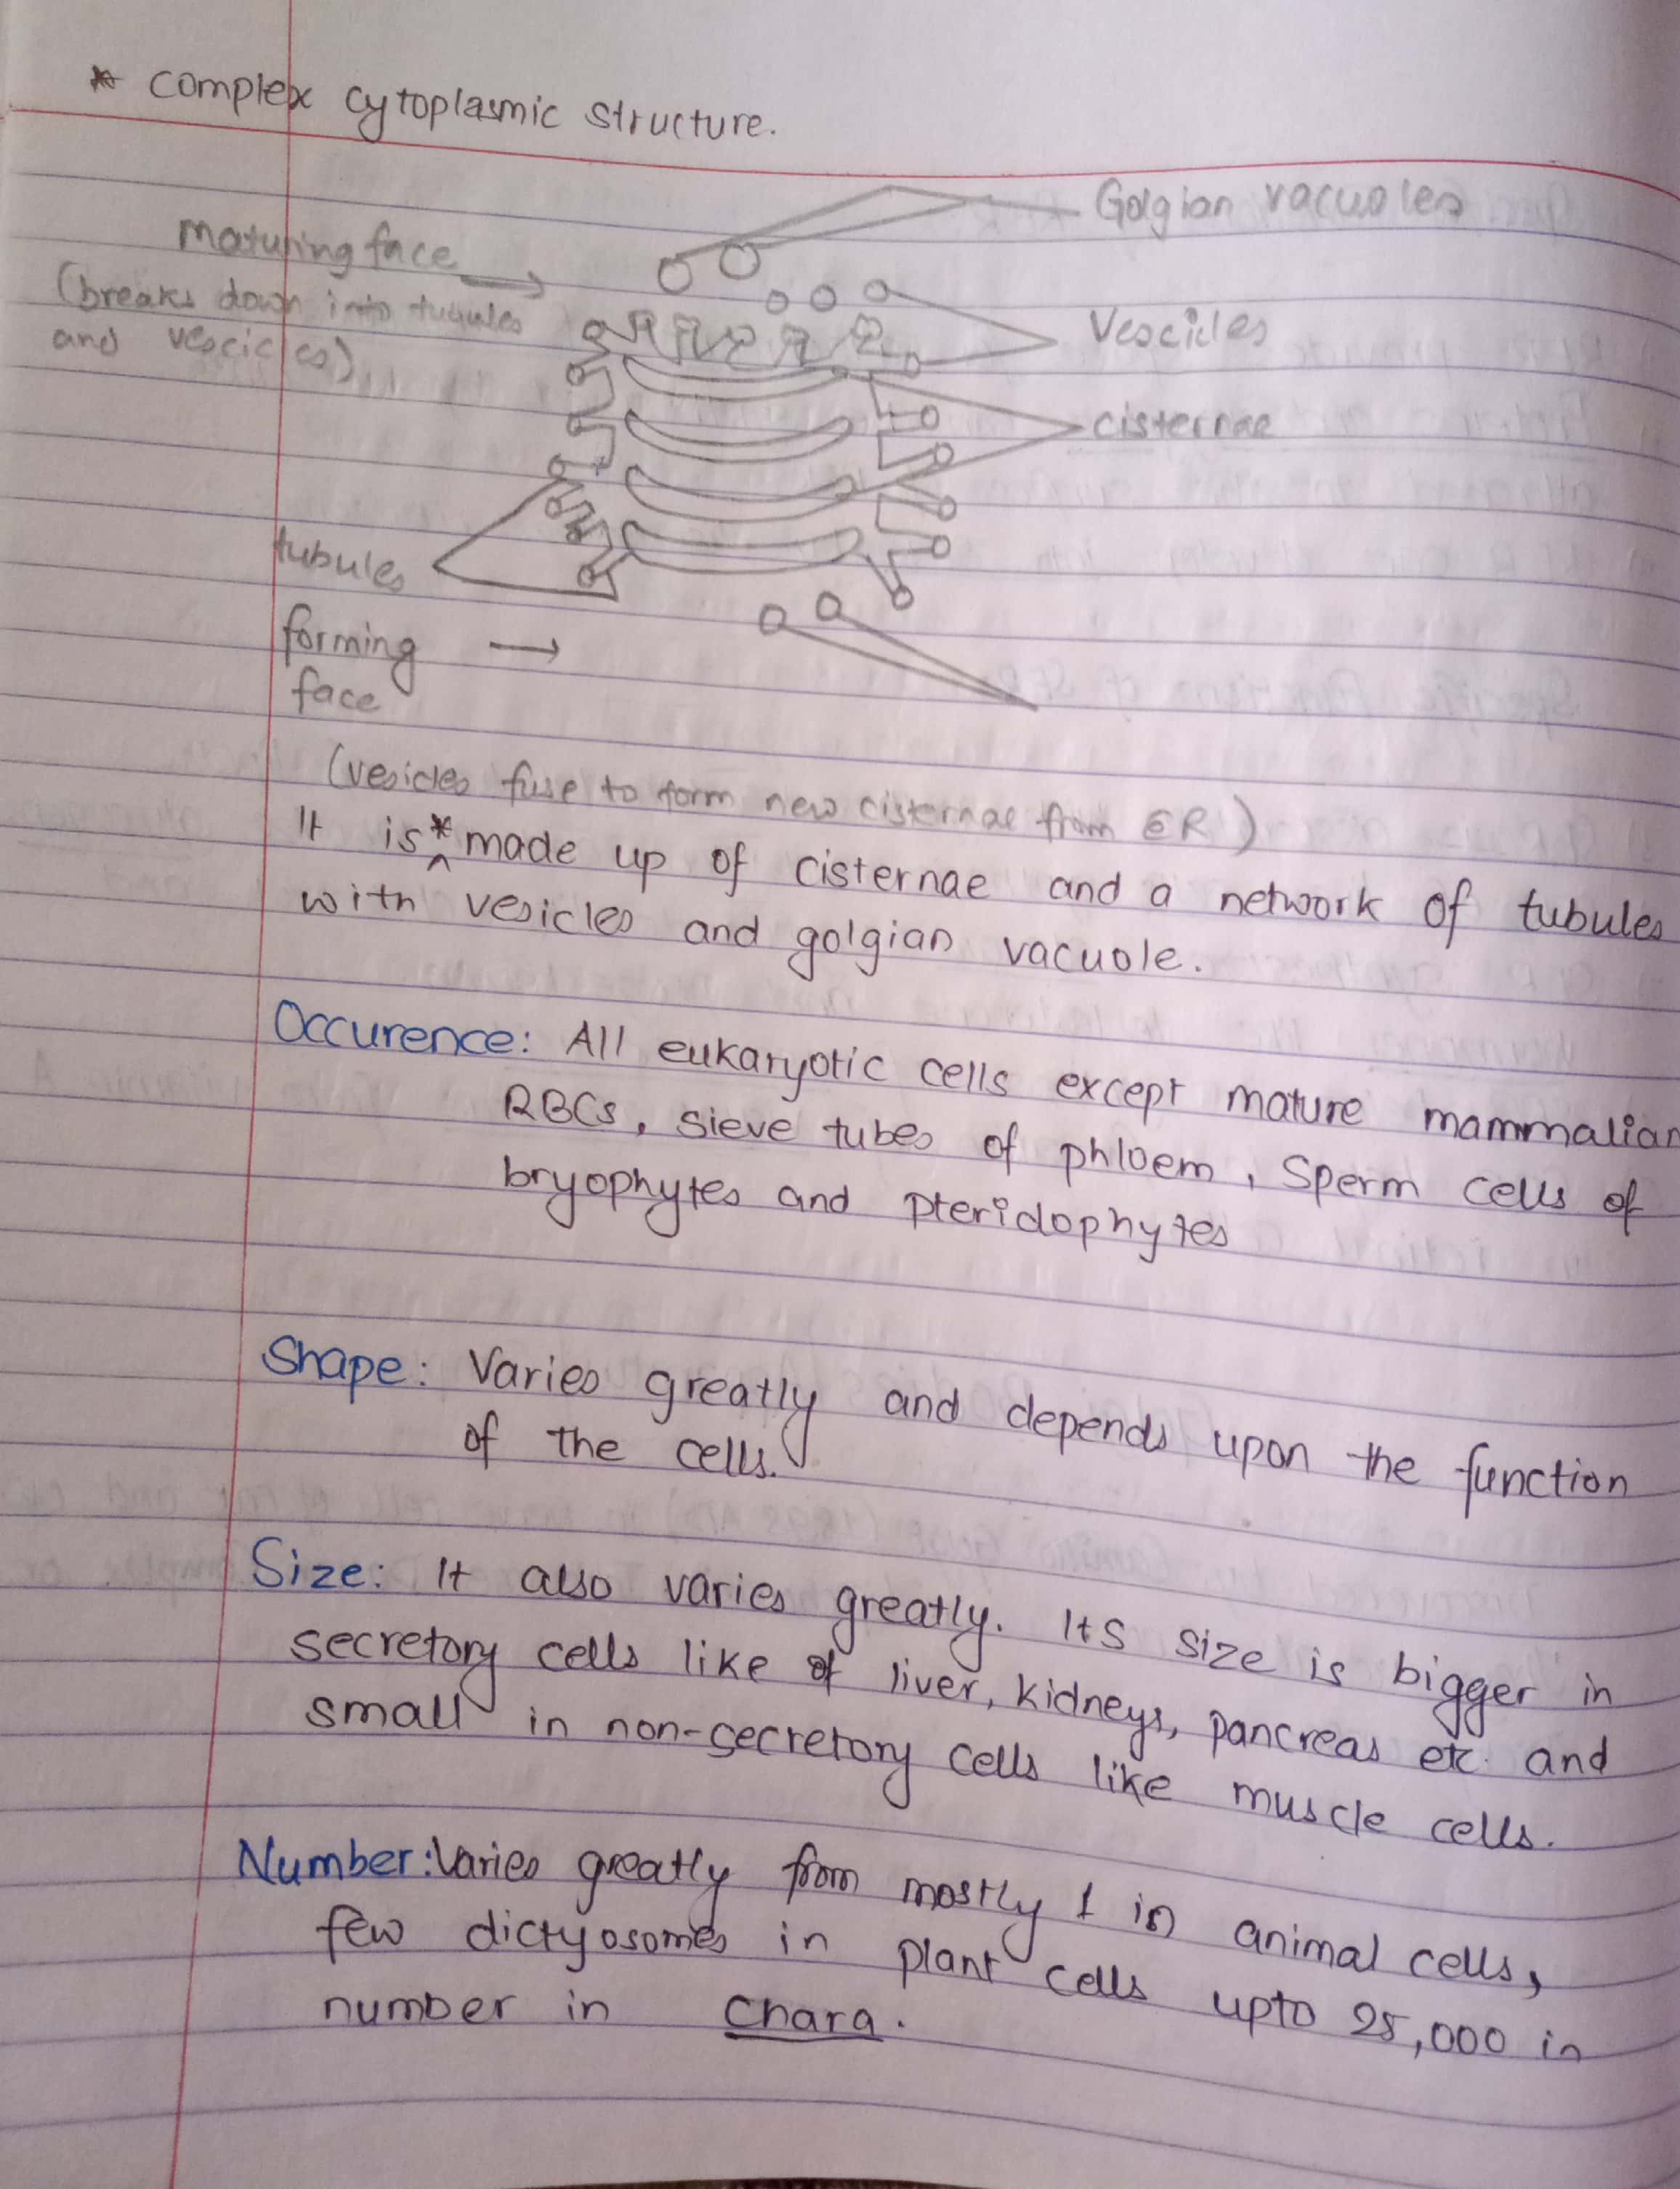 * Complex cytoplasmic structure.
Golgian vacuoles
Maturing face
(breaks down into tubules
and vescicles)
Vescicles
cisternae
tubules
forming
face
(vesicles fuse to form new cisternae from ER)
It is * made up of cisternae and a network of tubules
with vesicles and golgian vacuole.
Occurence: All eukaryotic cells except mature mammalian
RBCs, sieve tubes of phloem, Sperm cells of
bryophytes and Pteridophytes
Shape: Varies greatly and depends upon the function
of the cells.
Size: It also varies greatly. Its size is bigger in
secretory cells like of liver, kidneys, pancreas etc. and
small in non-secretory cells like muscle cells.
Number: Varies greatly from mostly 1 in animal cells,
few dictyosomes in plant cells upto 25,000 in
number in Chara.